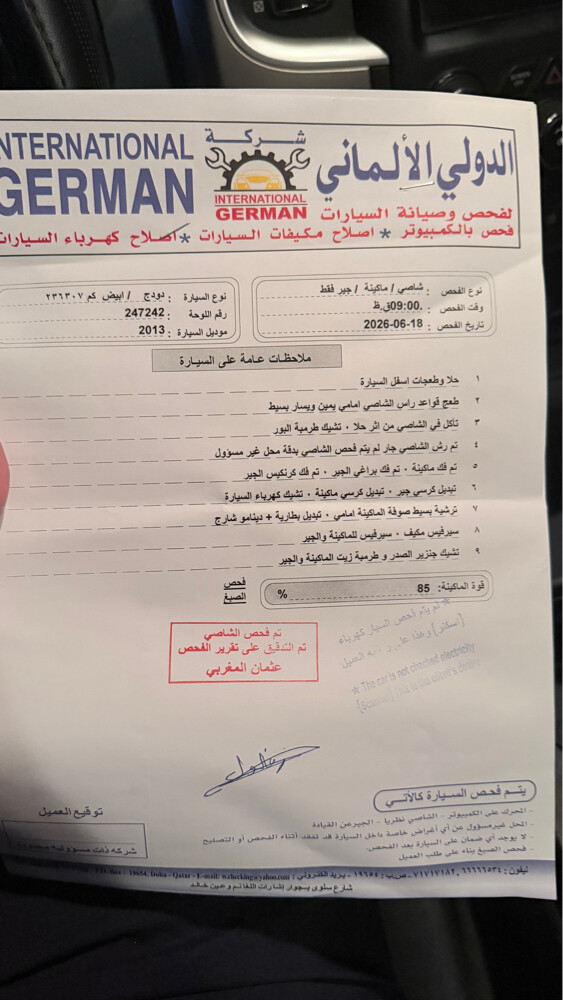 INTERNATIONAL
GERMAN
شركة
INTERNATIONAL
GERMAN
الدولي الألماني
لفحص وصيانة السيارات
فحص بالكمبيوتر * اصلاح مكيفات السيارات * اصلاح كهرباء السيارات
نوع الفحص : شاصي / ماكينة / جير فقط
وقت الفحص : 09:00.
تاريخ الفحص : 2026-06-18
نوع السيارة : دودج / ابيض كم ٢٣٦٣٠٧
رقم اللوحة : 247242
موديل السيارة : 2013
ملاحظات عامة على السيارة
١ حلا وطعجات اسفل السيارة
٢ طعج قواعد راس الشاصي امامي يمين ويسار بسيط
٣ تأكل في الشاصي من اثر حلا ٠ تشيك طرمبة البور
٤ تم رش الشاصي جار لم يتم فحص الشاصي بدقة محل غير مسؤول
٥ تم فك ماكينة ٠ تم فك براغي الجير ٠ تم فك كرنكيس الجير
٦ تبديل كرسي جير ٠ تبديل كرسي ماكينة ٠ تشيك كهرباء السيارة
٧ ترشية بسيط صوفة الماكينة امامي ٠ تبديل بطارية + دينامو شارج
٨ سيرفيس مكيف ٠ سيرفيس للماكينة والجير
٩ تشيك جنزير الصدر و طرمبة زيت الماكينة والجير
قوة الماكينة: 85 %
فحص
الصبغ
* لم يتم فحص السيار كهرباء
(اسكنر) وهذا
العميل
* The car is not checked electricity
تم فحص الشاصي
تم التدقيق على تقرير الفحص
عثمان المغربي
يتم فحص السيارة كالآتي
- المحرك على الكمبيوتر - الشاصي نظريا - الجير عن القيادة
- المحل غير مسؤول عن أي أغراض خاصة داخل السيارة قد تفقد أثناء الفحص أو التصليح
- لا يوجد أي ضمان على السيارة بعد الفحص.
- فحص الصبغ بناء على طلب العميل
توقيع العميل
شركة ذات مسؤولية
ليفون : ٦٦٦٦٦٥٣٤ ,٧١٧١٧١٨٢ - ص.ب : ١٩٦٥٤ - بريد الكتروني : 19654, Doha - Qatar - E-mail: w.checking@yahoo.com
شارع سلوى بجوار إشارات اللقائم وعين خالد